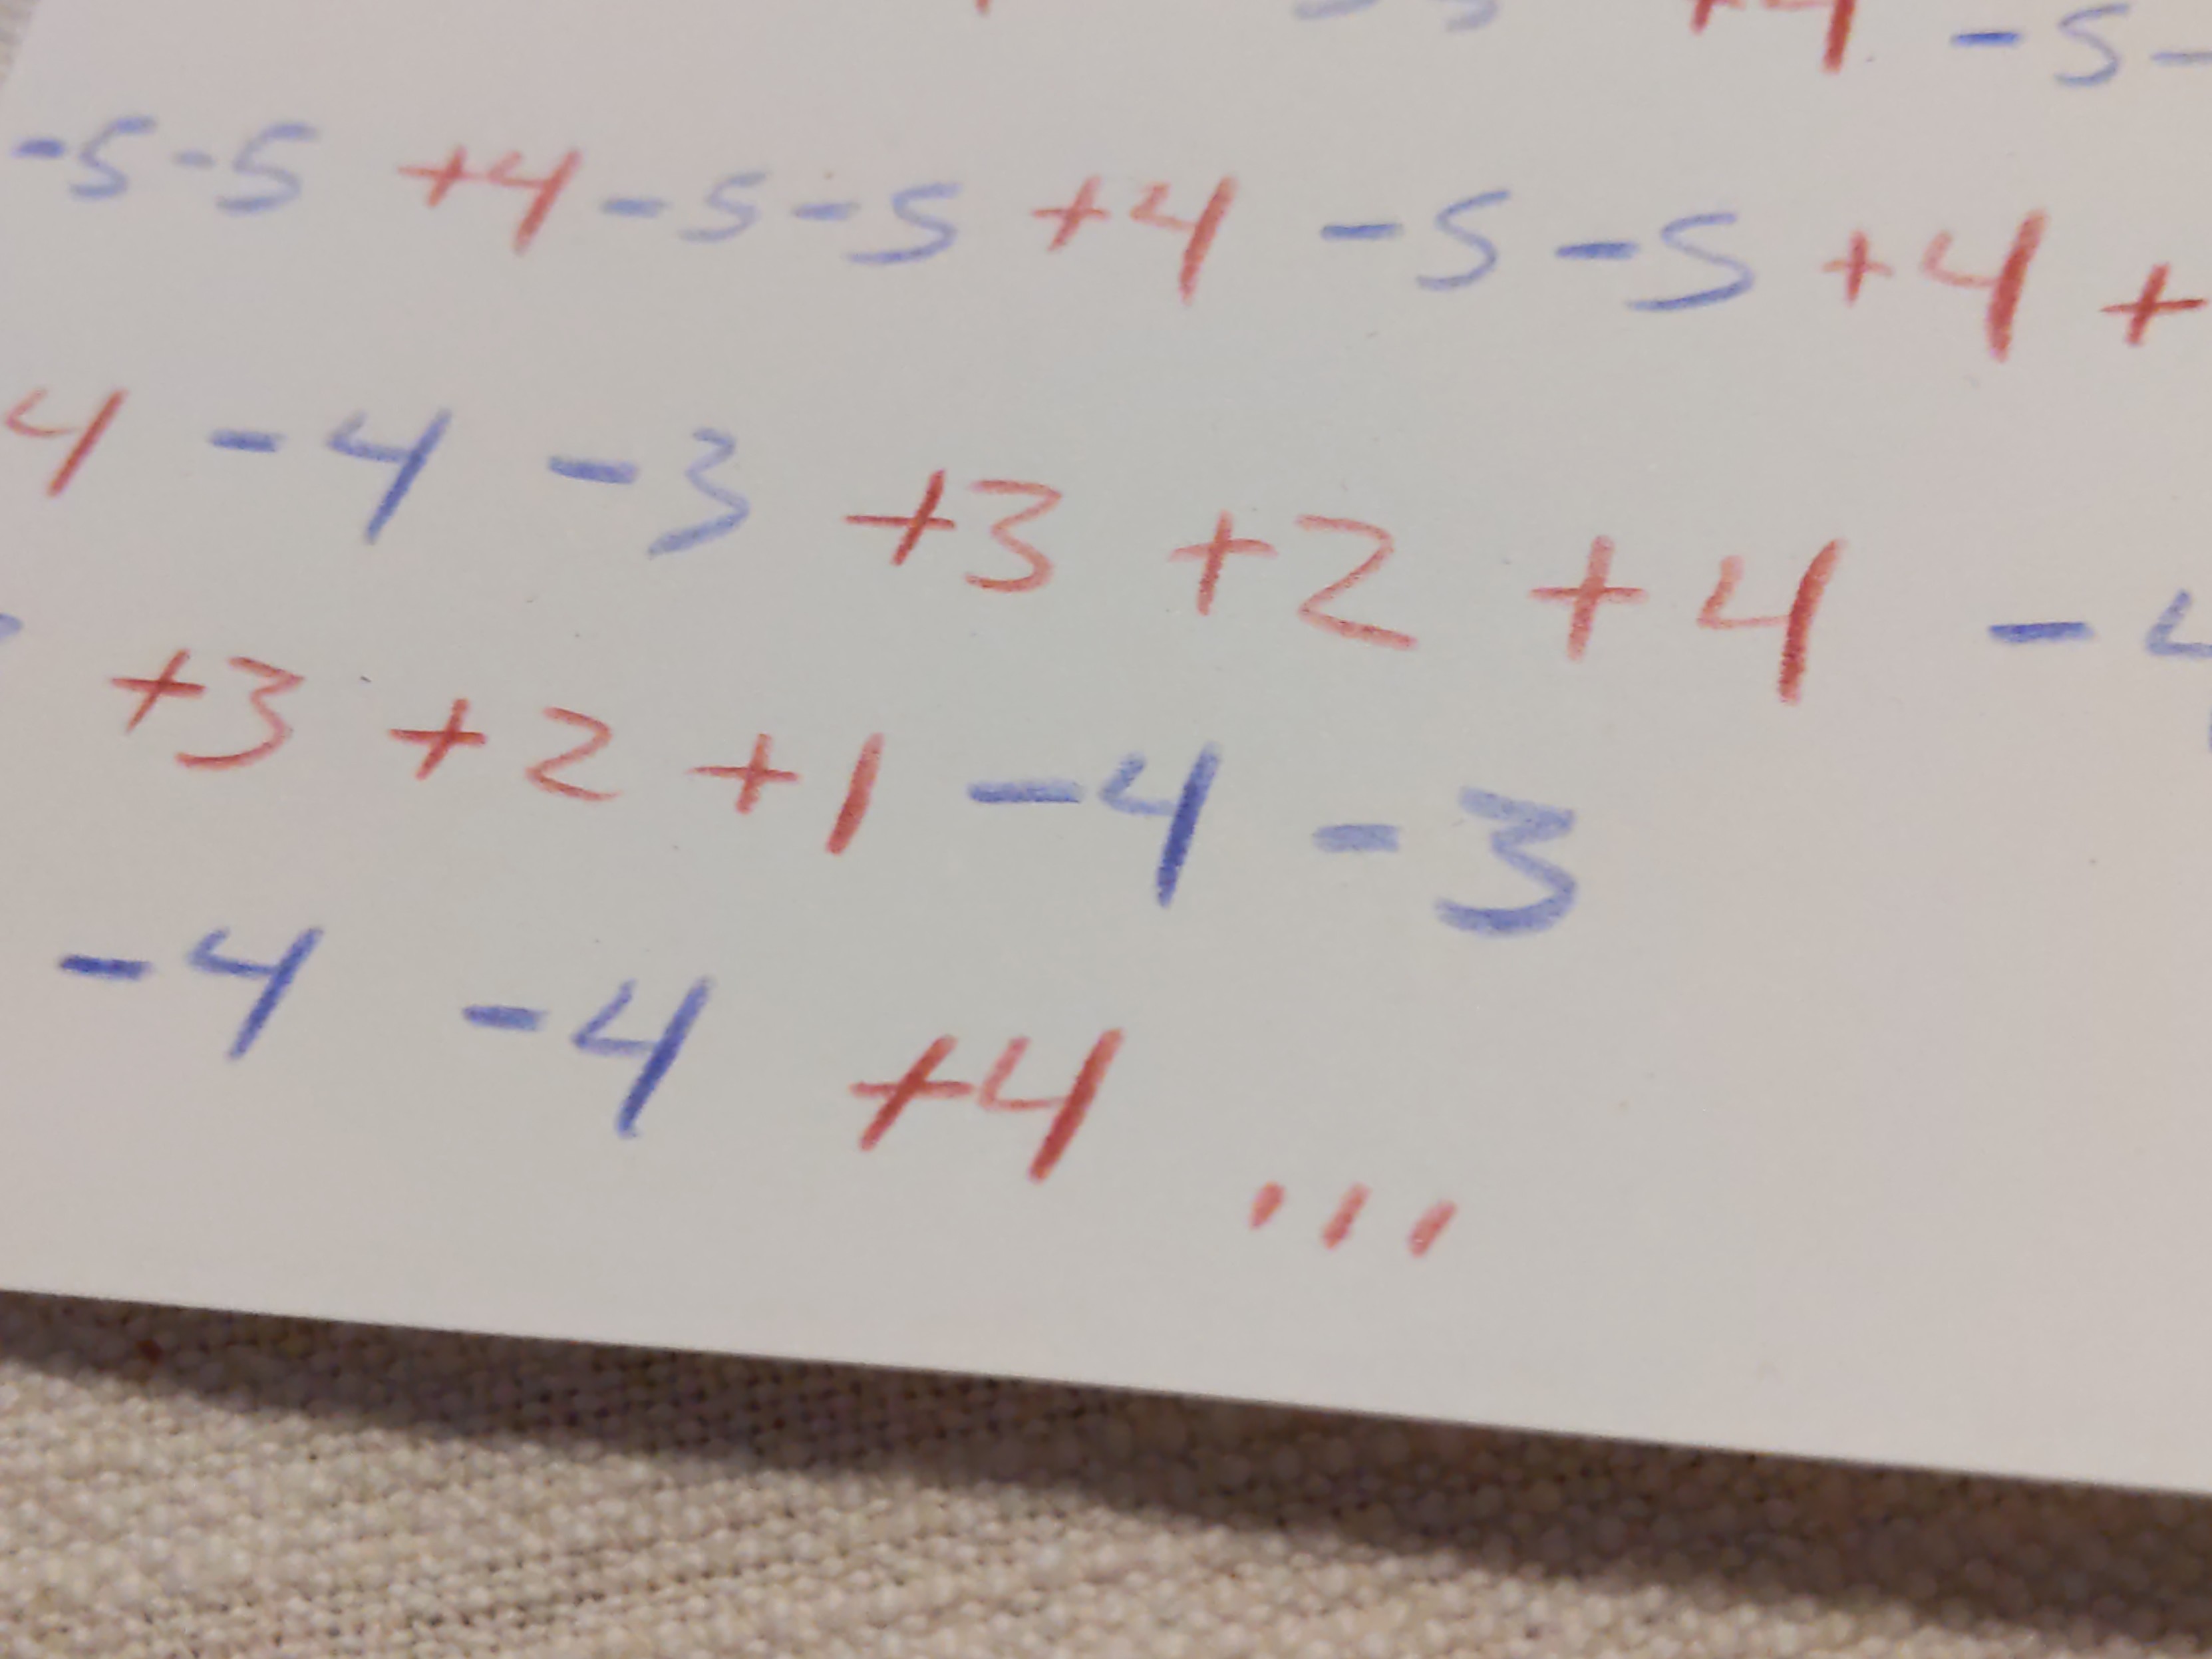 +4 -5-
-5-5 +4-5-5 +4 -5-5 +4 +
4 -4 -3 +3 +2 +4 -4
+3 +2 +1 -4 -3
-4 -4 +4 ...